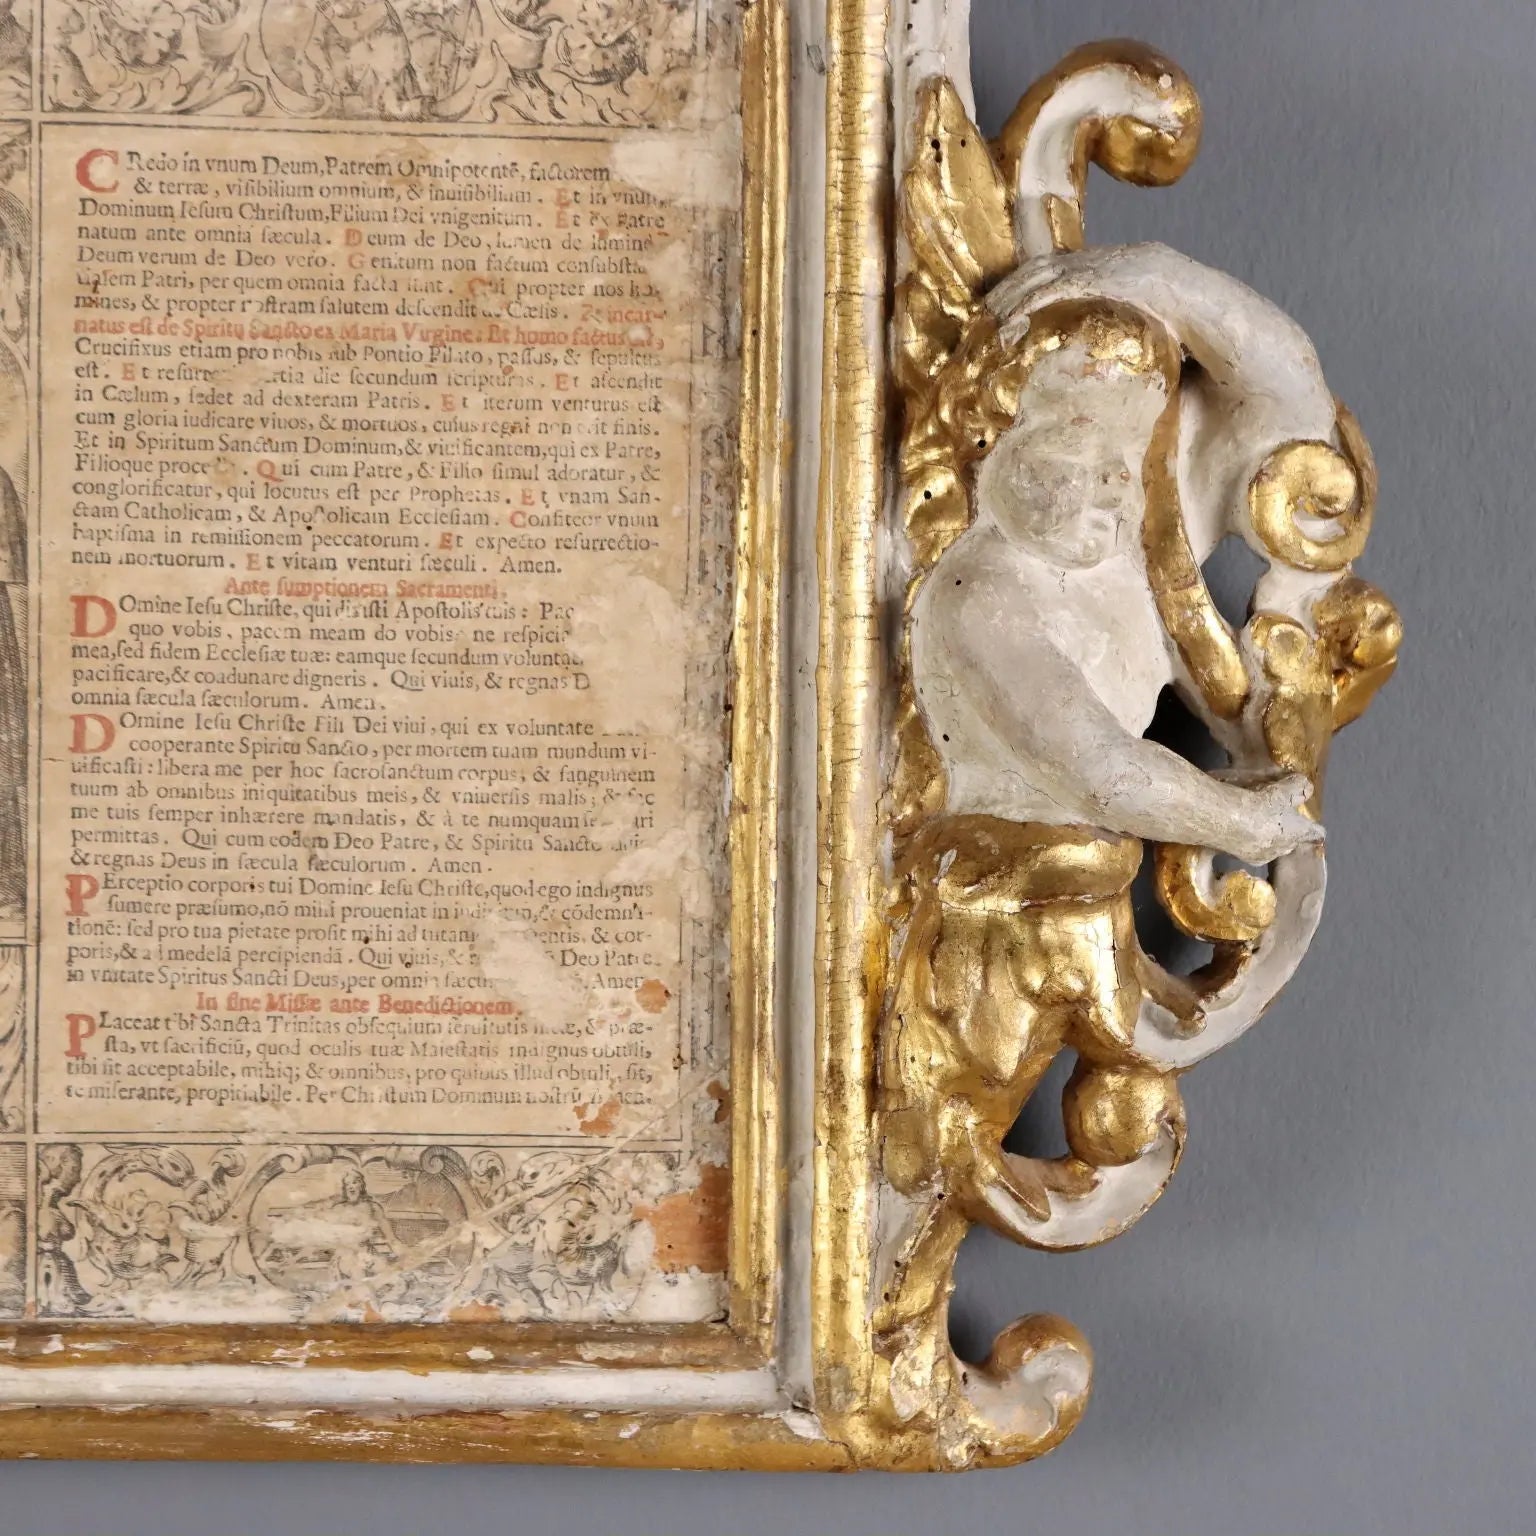 CRedo in vnum Deum, Patrem Omnipotentē, factorem
& terræ, visibilium omnium, & inuisibilium. Et in vnum,
Dominum Iesum Christum, Filium Dei vnigenitum. Et ex Patre
natum ante omnia sæcula. Deum de Deo, lumen de lumine
Deum verum de Deo vero. Genitum non factum consubsta
tialem Patri, per quem omnia facta sunt. Qui propter nos ho-
mines, & propter nostram salutem descendit de Cælis. Et incar-
natus est de Spiritu Sancto ex Maria Virgine: Et homo factus est,
Crucifixus etiam pro nobis sub Pontio Pilato, passus, & sepultus
est. Et resurre tertia die secundum scripturas. Et ascendit
in Cælum, sedet ad dexteram Patris. Et iterum venturus est
cum gloria iudicare viuos, & mortuos, cuius regni non erit finis.
Et in Spiritum Sanctum Dominum, & viuificantem, qui ex Patre,
Filioque proce . Qui cum Patre, & Filio simul adoratur, &
conglorificatur, qui locutus est per Prophetas. Et vnam San-
ctam Catholicam, & Apostolicam Ecclesiam. Confiteor vnum
baptisma in remissionem peccatorum. Et expecto resurrectio-
nem mortuorum. Et vitam venturi sæculi. Amen.
Ante sumptionem Sacramenti.
DOmine Iesu Christe, qui dixisti Apostolis tuis: Pac
quo vobis, pacem meam do vobis: ne respicia
mea, sed fidem Ecclesiæ tuæ: eamque secundum voluntat
pacificare, & coadunare digneris. Qui viuis, & regnas D
omnia sæcula sæculorum. Amen.
DOmine Iesu Christe Fili Dei viui, qui ex voluntate
cooperante Spiritu Sancto, per mortem tuam mundum vi-
uificasti: libera me per hoc sacrosanctum corpus, & sanguinem
tuum ab omnibus iniquitatibus meis, & vniuersis malis; & fac
me tuis semper inhærere mandatis, & à te numquam se
permittas. Qui cum eodem Deo Patre, & Spiritu Sancto viuis
& regnas Deus in sæcula sæculorum. Amen.
PErceptio corporis tui Domine Iesu Christe, quod ego indignus
sumere præsumo, nō mihi proueniat in iudicium, & cōdemna-
tionē: sed pro tua pietate prosit mihi ad tutam mentis, & cor-
poris, & ad medelā percipiendā. Qui viuis, & Deo Patre
in vnitate Spiritus Sancti Deus, per omnia sæcu . Amen
In fine Missæ ante Benedictionem.
PLaceat tibi Sancta Trinitas obsequium seruitutis meæ, & præ-
sta, vt sacrificiū, quod oculis tuæ Maiestatis indignus obtuli,
tibi sit acceptabile, mihiq; & omnibus, pro quibus illud obtuli, sit,
te miserante, propitiabile. Per Christum Dominum nostrū Amen.